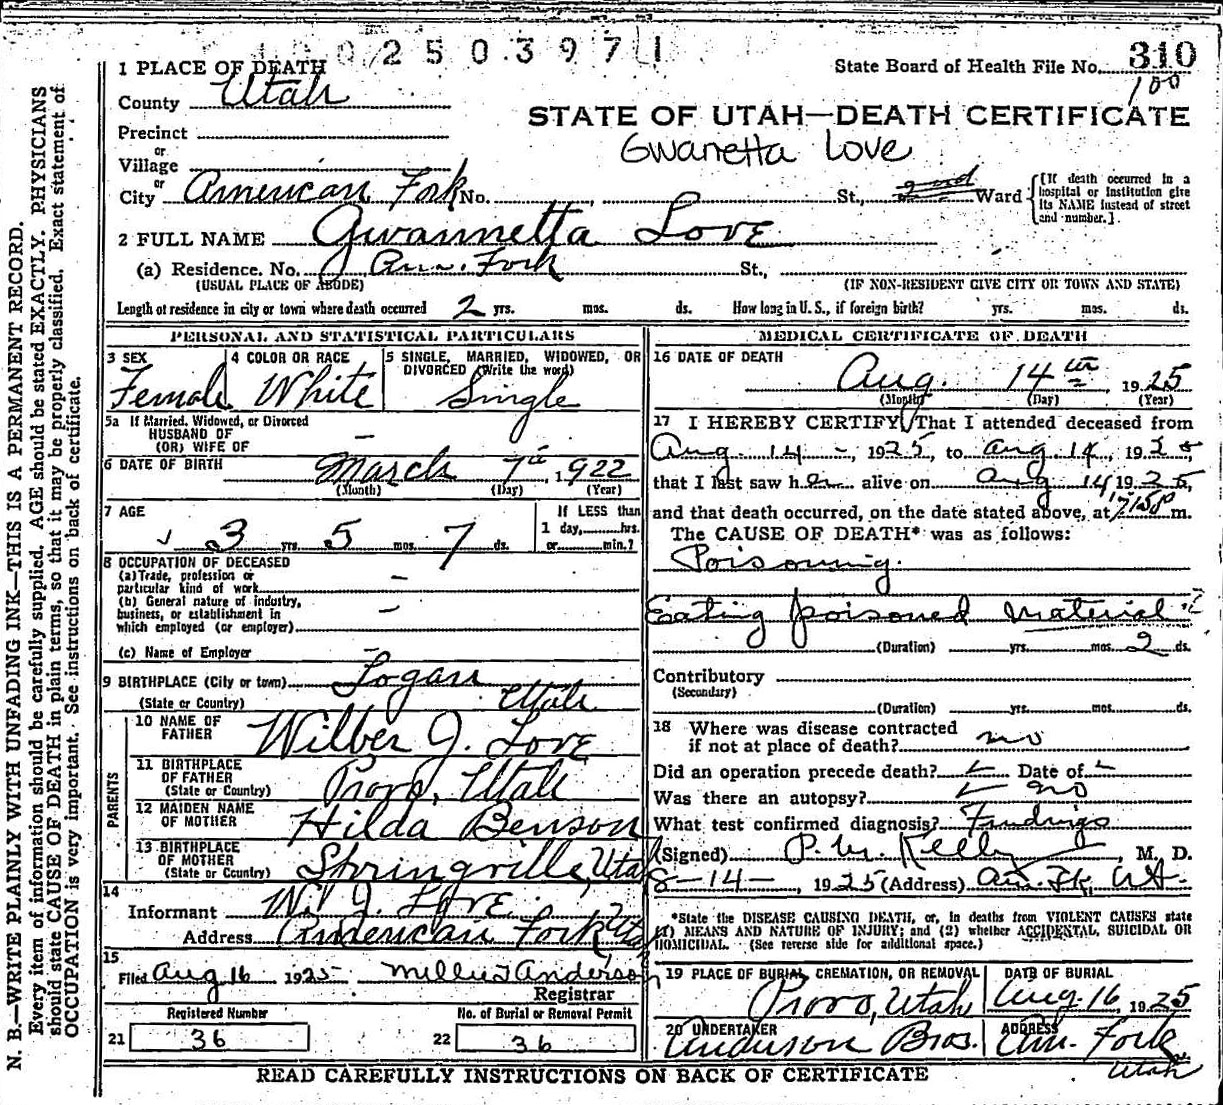 2503971
1 PLACE OF DEATH
State Board of Health File No. 310
100
County Utah
STATE OF UTAH—DEATH CERTIFICATE
Precinct
Gwanetta Love
or
Village
or
City American Fork No. St., 2nd Ward
{If death occurred in a
hospital or institution give
its NAME instead of street
and number.}
2 FULL NAME Gwannetta Love
(a) Residence. No. Am. Fork St.,
(USUAL PLACE OF ABODE) (IF NON-RESIDENT GIVE CITY OR TOWN AND STATE)
Length of residence in city or town where death occurred 2 yrs. mos. ds. How long in U. S., if foreign birth? yrs. mos. ds.
PERSONAL AND STATISTICAL PARTICULARS
3 SEX Female
4 COLOR OR RACE White
5 SINGLE, MARRIED, WIDOWED, OR
DIVORCED (Write the word)
Single
5a If Married, Widowed, or Divorced
HUSBAND OF
(OR) WIFE OF —
6 DATE OF BIRTH March 7th, 1922
(Month) (Day) (Year)
7 AGE
3 yrs. 5 mos. 7 ds.
If LESS than
1 day, hrs.
or min.?
8 OCCUPATION OF DECEASED
(a) Trade, profession or
particular kind of work —
(b) General nature of industry,
business, or establishment in
which employed (or employer) —
(c) Name of Employer —
9 BIRTHPLACE (City or town) Logan
(State or Country) Utah
PARENTS
10 NAME OF
FATHER Wilber J. Love
11 BIRTHPLACE
OF FATHER
(State or Country) Provo, Utah
12 MAIDEN NAME
OF MOTHER Hilda Benson
13 BIRTHPLACE
OF MOTHER
(State or Country) Springville, Utah
14
Informant W. J. Love
Address American Fork, Utah
15
Filed Aug 16 1925 Millie T Anderson
Registrar
Registered Number
21 36
No. of Burial or Removal Permit
22 36
MEDICAL CERTIFICATE OF DEATH
16 DATE OF DEATH
Aug. 14th 1925
(Month) (Day) (Year)
17 I HEREBY CERTIFY, That I attended deceased from
Aug. 14 -, 1925, to Aug. 14, 1925
that I last saw her alive on Aug 14 1925,
and that death occurred, on the date stated above, at 7:50 P m.
The CAUSE OF DEATH* was as follows:
Poisoning.
Eating poisoned material?
(Duration) yrs. mos. 2 ds.
Contributory
(Secondary)
(Duration) yrs. mos. ds.
18 Where was disease contracted
if not at place of death? no
Did an operation precede death? Date of
Was there an autopsy? no
What test confirmed diagnosis? Findings
(Signed) P. M. Kelly, M. D.
8-14-, 1925 (Address) Am. Fk. Ut.
*State the DISEASE CAUSING DEATH, or, in deaths from VIOLENT CAUSES state
(1) MEANS AND NATURE OF INJURY; and (2) whether ACCIDENTAL, SUICIDAL OR
HOMICIDAL. (See reverse side for additional space.)
19 PLACE OF BURIAL, CREMATION, OR REMOVAL
Provo, Utah
DATE OF BURIAL
Aug. 16, 1925
20 UNDERTAKER
Anderson Bros.
ADDRESS
Am. Fork
Utah
READ CAREFULLY INSTRUCTIONS ON BACK OF CERTIFICATE
N. B.—WRITE PLAINLY WITH UNFADING INK—THIS IS A PERMANENT RECORD.
Every item of information should be carefully supplied. AGE should be stated EXACTLY. PHYSICIANS
should state CAUSE OF DEATH in plain terms, so that it may be properly classified. Exact statement of
OCCUPATION is very important. See instructions on back of certificate.